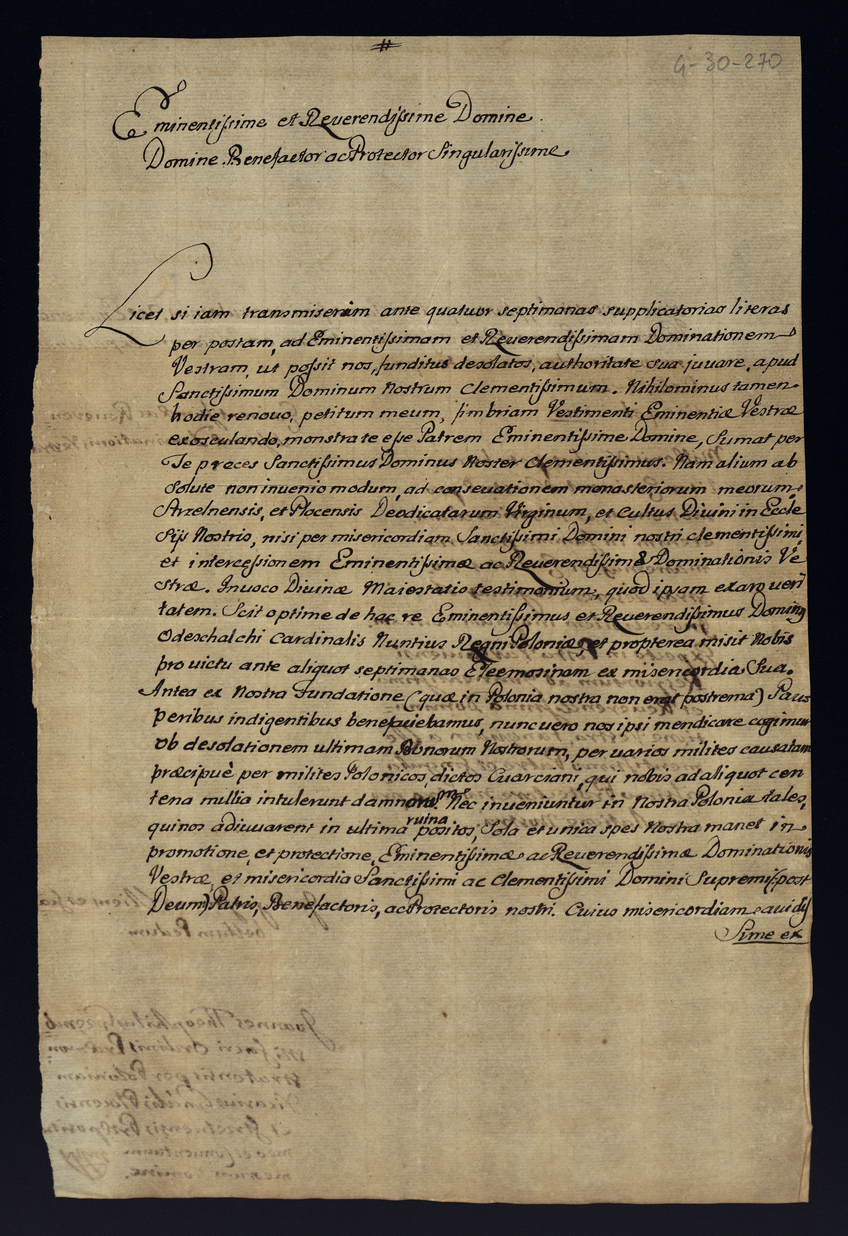 G-30-270
Eminentissime et Reverendissime Domine
Domine Benefactor ac Protector Singularissime.
Licet si iam transmiserim ante quatuor septimanas supplicatorias literas
per postam, ad Eminentissimam et Reverendissimam Dominationem
Vestram, ut possit nos, funditus desolatos, authoritate sua juvare, apud
Sanctissimum Dominum Nostrum Clementissimum. Nihilominus tamen
hodie renovo, petitum meum, fimbriam Vestimenti Eminentiæ Vestræ
exosculando, monstra te esse Patrem Eminentissime Domine, Sumat per
Te preces Sanctissimus Dominus Noster Clementissimus. Nam alium ab
solute non invenio modum, ad conseuationem monasteriorum meorum
Strzelnensis, et Plocensis Deodicatarum Virginum, et Cultus Divini in Eccle
sijs Nostris, nisi per misericordiam Sanctissimi Domini nostri clementissimi,
et intercessionem Eminentissimæ ac Reverendissimæ Dominationis Ve
stræ. Invoco Divinæ Maiestatis testimonium, quod ipsam exaro veri
tatem. Scit optime de hac re Eminentissimus et Reverendissimus Dominus
Odeschalchi Cardinalis Nuntius Regni Poloniæ, et propterea misit Nobis
pro victu ante aliquot septimanas Eleemosinam ex misericordia Sua.
Antea ex Nostra Fundatione (quæ in Polonia nostra non erat postrema) Pau
peribus indigentibus benefaciebamus, nunc uero nos ipsi mendicare cogimur
ob desolationem ultimam Bonorum Nostrorum, per varios milites causatam
præcipuè per milites Polonicos, dictos Cuarciani, qui nobis ad aliquot cen
tena millia intulerunt damnorum. Nec inveniuntur in Nostra Polonia tales,
qui nos adiuuarent in ultima ruina positos, Sola et unica spes Nostra manet in
promotione, et protectione, Eminentissimæ ac Reverendissimæ Dominationis
Vestræ, et misericordia Sanctissimi ac Clementissimi Domini Supremi (post
Deum) Patris, Benefactoris, ac Protectoris nostri. Cuius misericordiam auidis
Sime ex